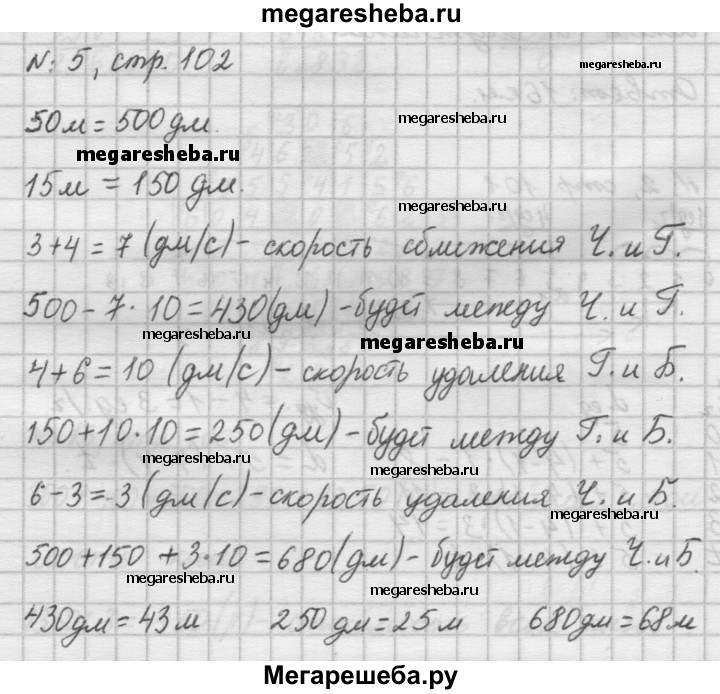 megaresheba.ru
№ 5, стр. 102
megaresheba.ru
50м = 500 дм.
megaresheba.ru
megaresheba.ru
15м = 150 дм.
megaresheba.ru
3+4 = 7 (дм/с) - скорость сближения Ч. и Г.
500 - 7 · 10 = 430 (дм) - будет между Ч. и Г.
megaresheba.ru
megaresheba.ru
4+6 = 10 (дм/с) - скорость удаления Г. и Б.
150+10·10 = 250 (дм) - будет между Г. и Б.
megaresheba.ru
megaresheba.ru
6-3 = 3 (дм/с) - скорость удаления Ч. и Б.
megaresheba.ru
500+150 +3·10 = 680 (дм) - будет между Ч. и Б.
megaresheba.ru
megaresheba.ru
430дм = 43м 250 дм = 25 м 680дм = 68м
Мегарешеба.ру